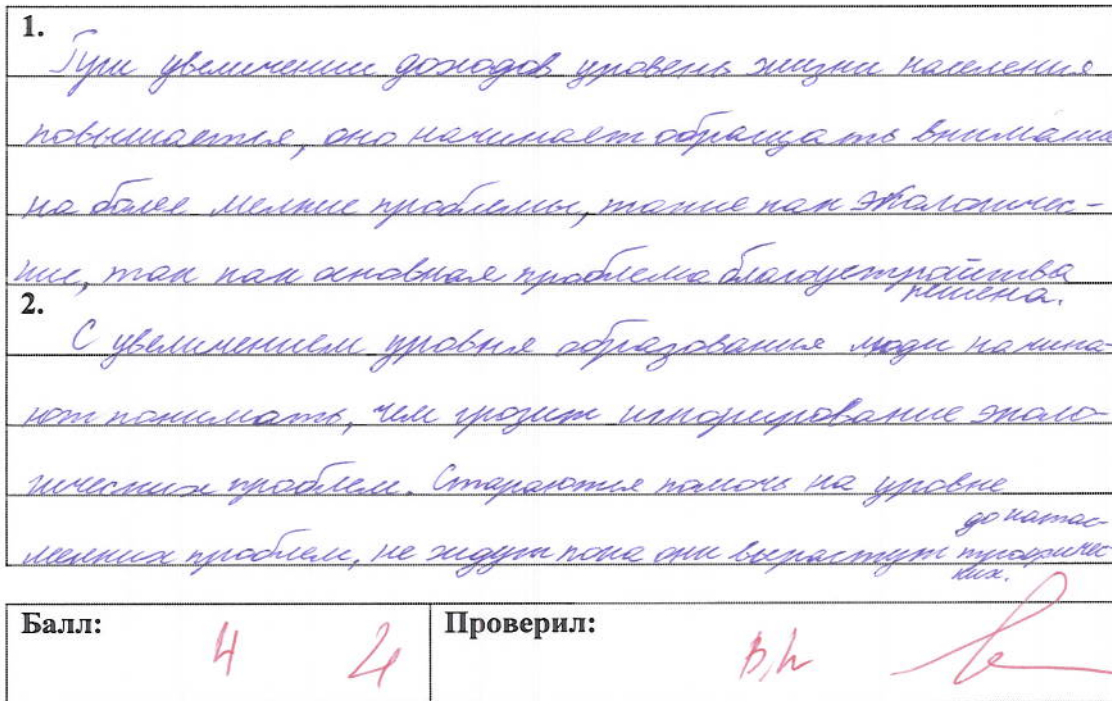 1.
При увеличении доходов уровень жизни населения
повышается, оно начинает обращать внимание
на более мелкие проблемы, такие как экологичес-
кие, так как основная проблема благоустройства
решена.
2.
С увеличением уровня образования люди начина-
ют понимать, чем грозит игнорирование эколо-
гических проблем. Стараются помочь на уровне
мелких проблем, не ждут пока они вырастут до катас-
трофичес-
ких.
Балл: 4 Проверил: